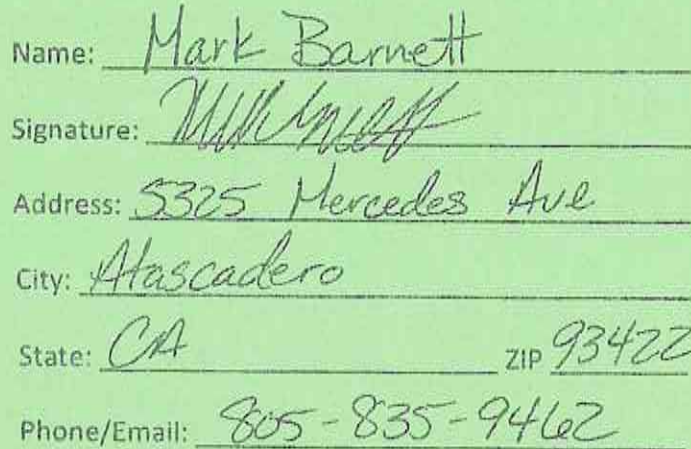 Name: Mark Barnett
Signature:
Address: 5325 Mercedes Ave
City: Atascadero
State: CA ZIP 93422
Phone/Email: 805-835-9462